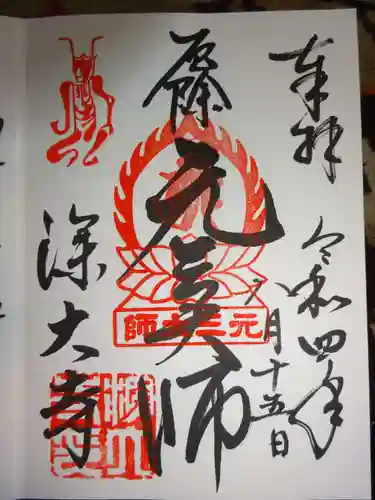 奉拝
令和四年
六月十五日
厄除
元三大師
元三大師
深大寺